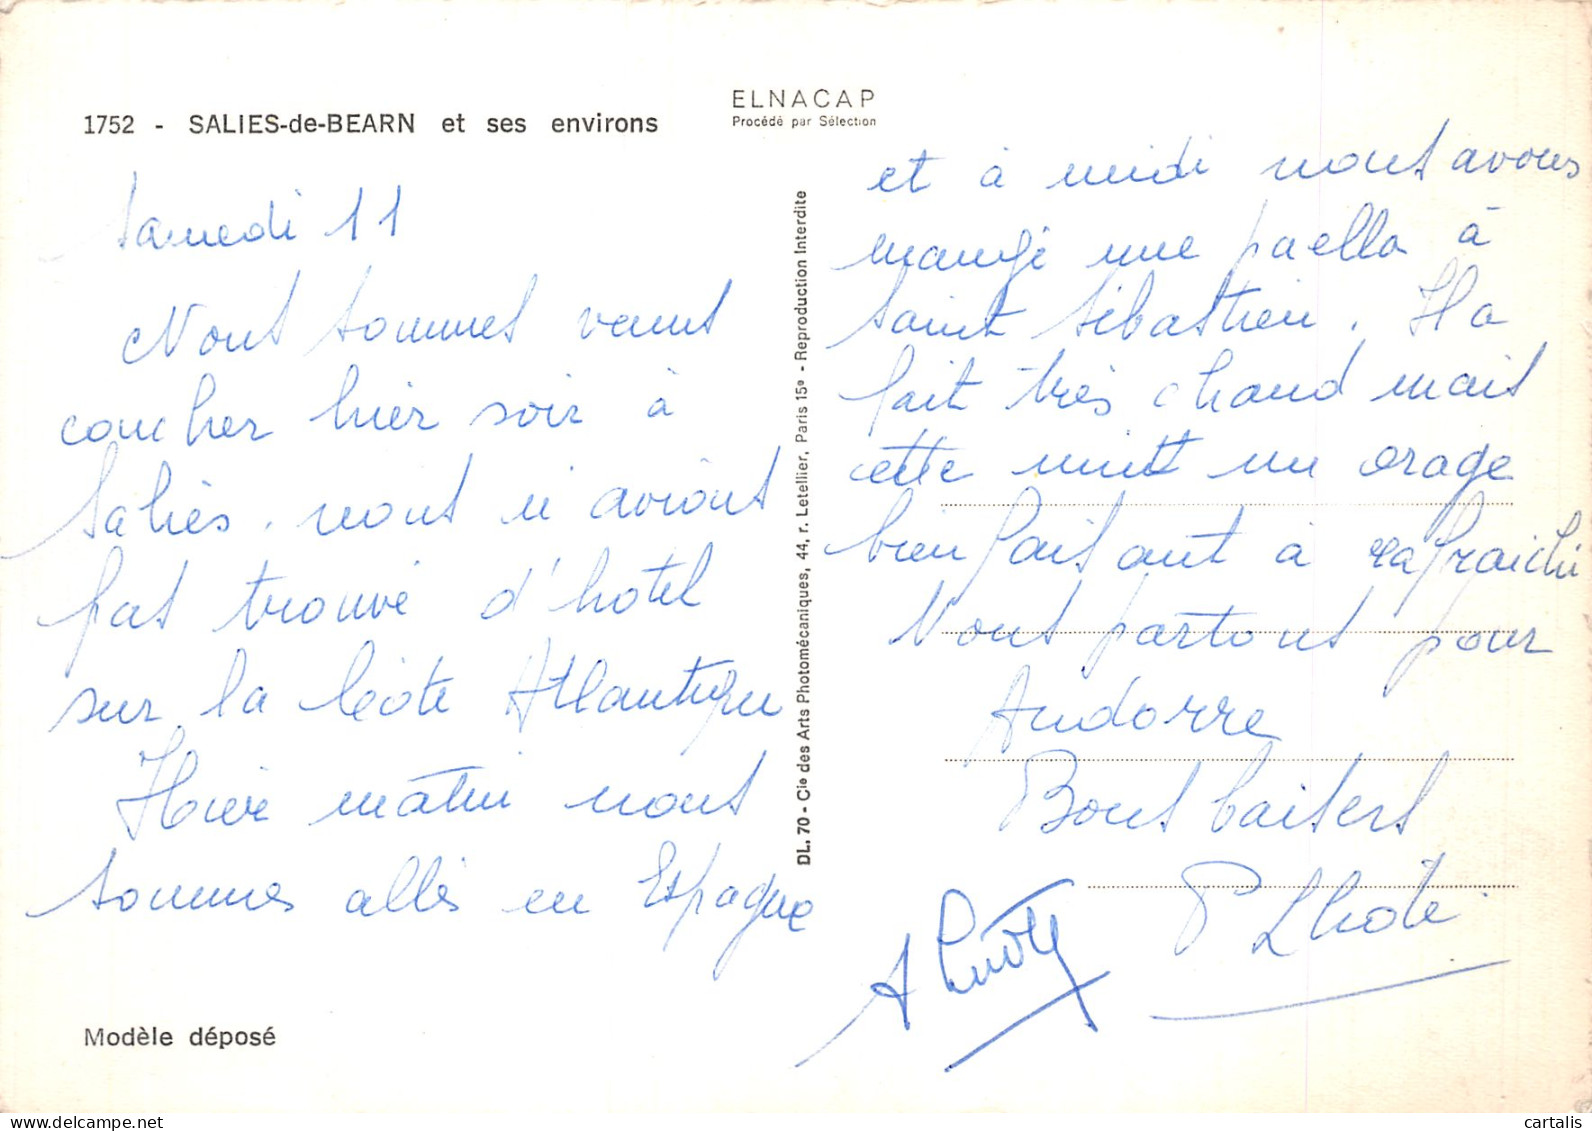 1752 - SALIES-de-BEARN et ses environs
ELNACAP
Procédé par Sélection
Samedi 11
Nous sommes venus
coucher hier soir à
Saliès. nous n'avions
pas trouvé d'hotel
sur la côte Atlantique
Hier matin nous
sommes allés en Espagne
Modèle déposé
DL. 70 - Cie des Arts Photomécaniques, 44, r. Letellier, Paris 15e - Reproduction Interdite
et à midi nous avons
mangé une paella à
Saint Sébastien. Il a
fait très chaud mais
cette nuit un orage
bien faisant a rafraichi
Nous partons pour
Andorre
Bons baisers
P Lhote
A Lhote
cartalis.com